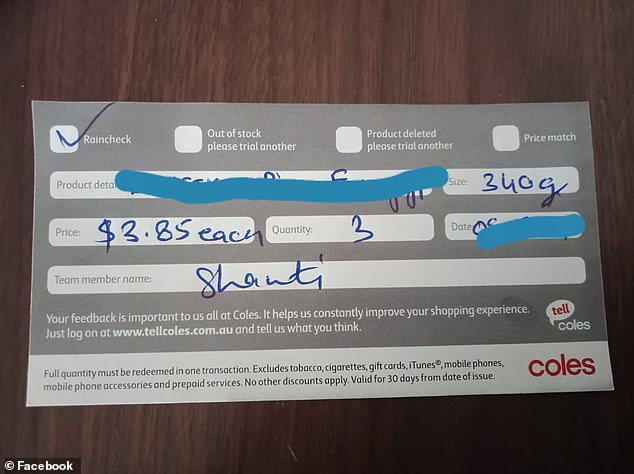 Raincheck
Out of stock
please trial another
Product deleted
please trial another
Price match
Product
Size: 340g
Price: $3.85 each Quantity: 3 Date:
Team member name: Shanti
Your feedback is important to us all at Coles. It helps us constantly improve your shopping experience.
Just log on at www.tellcoles.com.au and tell us what you think.
tell
coles
Full quantity must be redeemed in one transaction. Excludes tobacco, cigarettes, gift cards, iTunes®, mobile phones,
mobile phone accessories and prepaid services. No other discounts apply. Valid for 30 days from date of issue.
coles
© Facebook